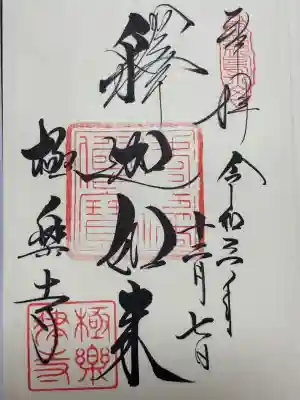 奉拝
令和六年
十二月七日
釋迦如来
極楽寺
極樂
律寺